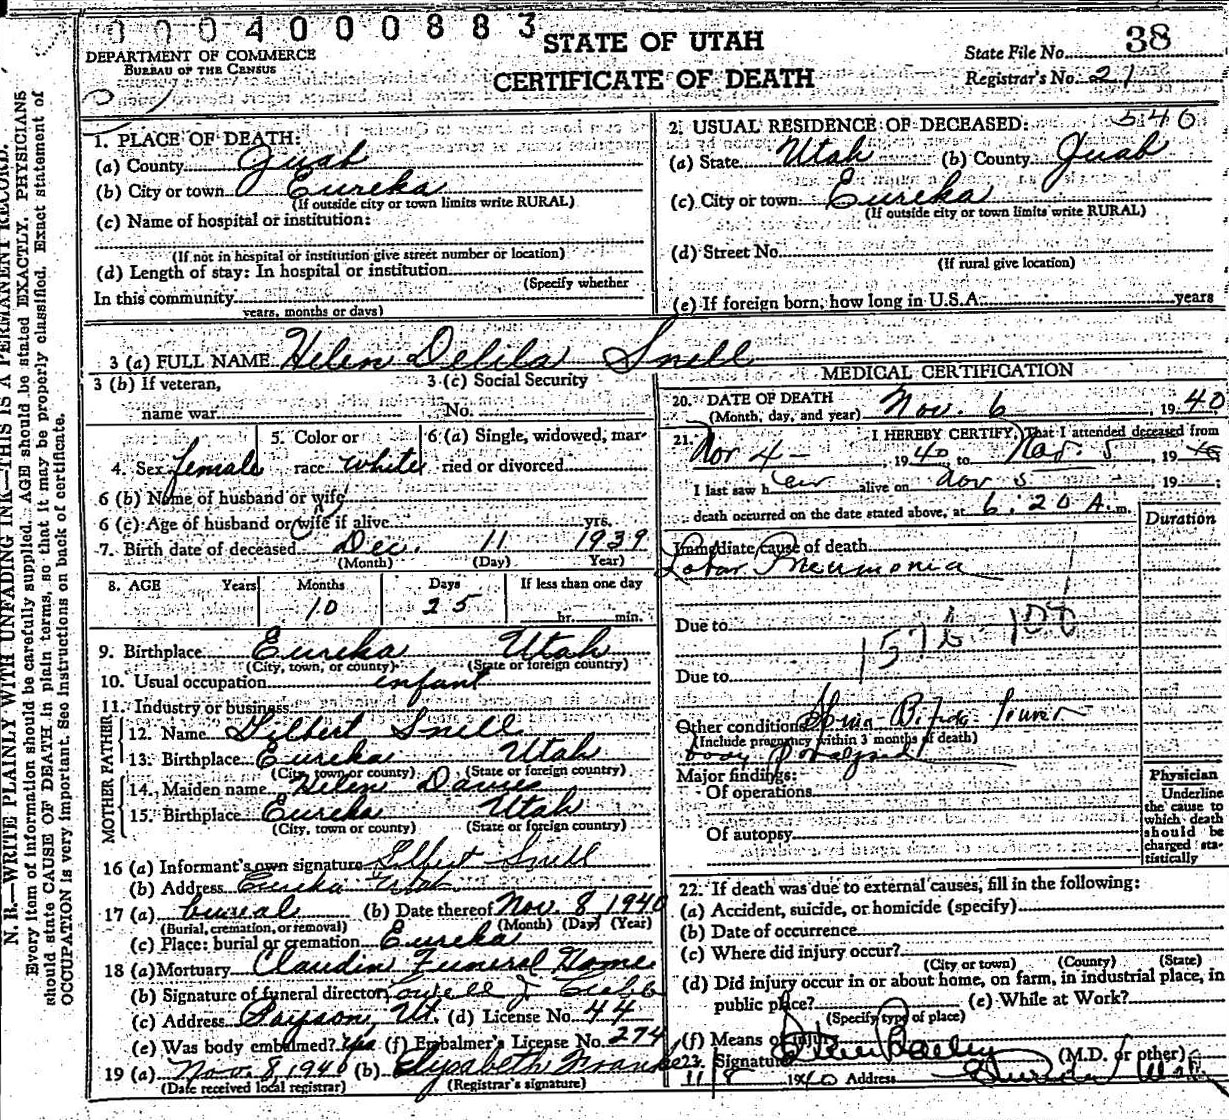 0004000883
STATE OF UTAH
CERTIFICATE OF DEATH
DEPARTMENT OF COMMERCE
BUREAU OF THE CENSUS
State File No. 38
Registrar's No. 21
N. B.—WRITE PLAINLY WITH UNFADING INK—THIS IS A PERMANENT RECORD.
Every item of information should be carefully supplied. AGE should be stated EXACTLY. PHYSICIANS
should state CAUSE OF DEATH in plain terms, so that it may be properly classified. Exact statement of
OCCUPATION is very important. See instructions on back of certificate.
1. PLACE OF DEATH:
(a) County Juab
(b) City or town Eureka
(If outside city or town limits write RURAL)
(c) Name of hospital or institution:
(If not in hospital or institution give street number or location)
(d) Length of stay: In hospital or institution
(Specify whether
In this community
years, months or days)
2. USUAL RESIDENCE OF DECEASED: 540
(a) State Utah (b) County Juab
(c) City or town Eureka
(If outside city or town limits write RURAL)
(d) Street No.
(If rural give location)
(e) If foreign born, how long in U.S.A. years
3 (a) FULL NAME Helen Delila Snell
3 (b) If veteran,
name war
3 (c) Social Security
No.
4. Sex female
5. Color or
race White
6 (a) Single, widowed, mar-
ried or divorced
6 (b) Name of husband or wife
6 (c) Age of husband or wife if alive yrs.
7. Birth date of deceased Dec. 11 1939
(Month) (Day) Year)
8. AGE Years Months Days If less than one day
10 25 hr. min.
9. Birthplace Eureka Utah
(City, town, or county) (State or foreign country)
10. Usual occupation infant
11. Industry or business
FATHER
12. Name Gilbert Snell
13. Birthplace Eureka Utah
(City, town or county) (State or foreign country)
MOTHER
14. Maiden name Helen
15. Birthplace Eureka Utah
(City, town or county) (State or foreign country)
16 (a) Informant's own signature Gilbert Snell
(b) Address Eureka Utah
17 (a) burial (b) Date thereof Nov. 8 1940
(Burial, cremation, or removal) (Month) (Day) (Year)
(c) Place: burial or cremation Eureka
18 (a) Mortuary Claudin Funeral Home
(b) Signature of funeral director
(c) Address Payson, Ut. (d) License No. 44
(e) Was body embalmed? Yes (f) Embalmer's License No. 274
19 (a) Nov. 8, 1940 (b) Elizabeth Franke
(Date received local registrar) (Registrar's signature)
MEDICAL CERTIFICATION
20. DATE OF DEATH
(Month, day, and year) Nov. 6, 1940
21. I HEREBY CERTIFY, That I attended deceased from
Nov 4 — , 1940 to Nov. 5 1940
I last saw her alive on Nov 5 , 19
death occurred on the date stated above, at 6:20 A. m.
Duration
Immediate cause of death
Lobar Pneumonia
Due to
157b 108
Due to
Other conditions Spina Bifida lower
(Include pregnancy within 3 months of death)
body
Major findings:
Of operations
Of autopsy
Physician
Underline
the cause to
which death
should be
charged sta-
tistically
22. If death was due to external causes, fill in the following:
(a) Accident, suicide, or homicide (specify)
(b) Date of occurrence
(c) Where did injury occur?
(City or town) (County) (State)
(d) Did injury occur in or about home, on farm, in industrial place, in
public place? (e) While at Work?
(Specify type of place)
(f) Means of injury
23. Signature Bailey (M.D. or other)
11/8 1940 Address Eureka Utah